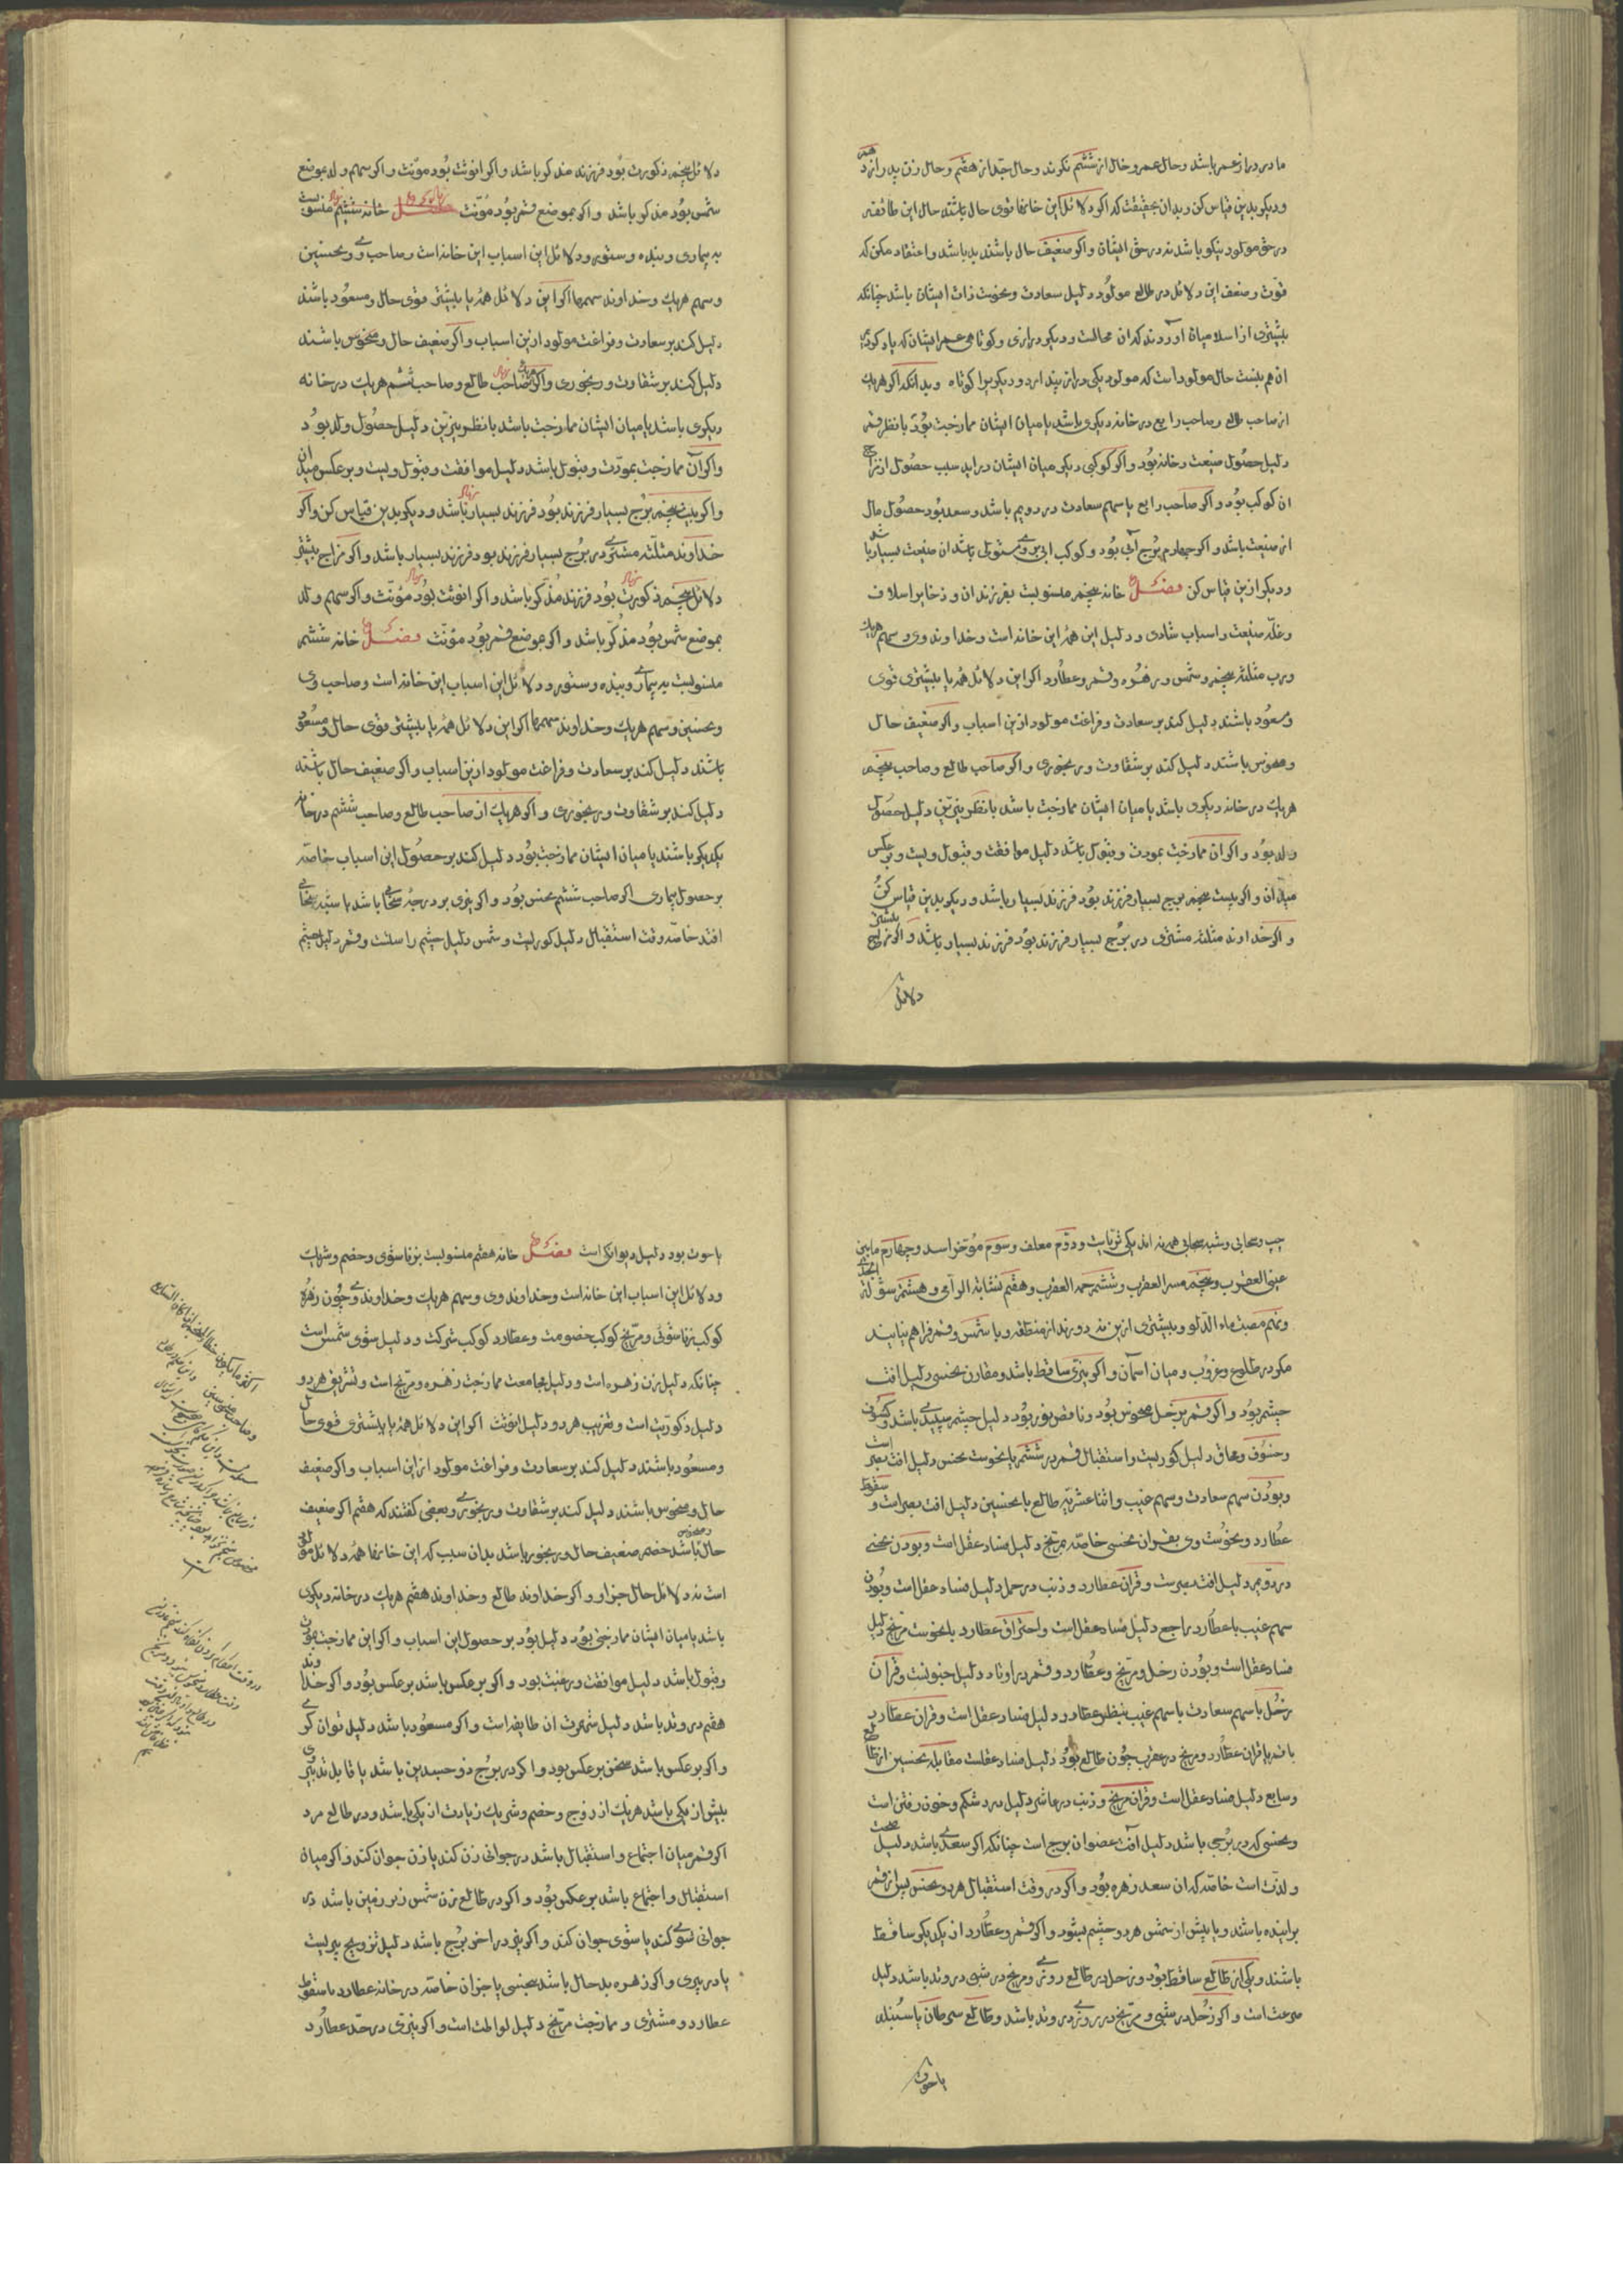 مادر دراز عمر باشد وحال عم و خال از ششم نکرند وحال جد از هفتم وحال زن پدر از دهم
و دیکر بدین قیاس کن و بدان بحقیقت که اکر دلائل این خانها قوی حال باشند حال این طائفه
در حق مولود نیکو باشد نه در حق ایشان و اکر ضعیف حال باشند بد باشد و اعتقاد مکن که
قوت و ضعف این دلائل در طالع مولود دلیل سعادت و نحوست ذات ایشان باشد چنانکه
بیشتری از اسلامیان آورده‌اند که ان محالست و دیکر درازی و کوتاهی عمر ایشان که یاد کردیم
ان هم بنسبت حال مولود است که مولود یکی دراز پندارد و دیکر برا کوتاه و بدانکه اکر هریک
از صاحب طالع و صاحب رابع در خانه دیکری باشد یا میان ایشان ممازجت بود با نظر قمر
دلیل حصول ضیعت و خانه بود و اکر کوکبی دیکر میان ایشان دراید سبب حصول از مزاج
ان کوکب بود و اکر صاحب رابع با سهم سعادت در دویم باشد و سعد بود حصول مال
از ضیعت باشد و اکر چهارم برج آبی بود و کوکب ابی بر وی مستولی باشد ان ضیعت بسیار باشد
و دیکر ازین قیاس کن فصل خانه پنجم منسوبست بفرزندان و ذخایر اسلاف
و غله ضیعت و اسباب شادی و دلیل این همه این خانه است و خداوند وی و سهم هریک
و رب مثلثه پنجم و شمس و زهره و قمر و عطارد اکر این دلائل همه یا بیشتری قوی
و مسعود باشند دلیل کند بر سعادت و فراغت مولود ازین اسباب و اکر ضعیف حال
و منحوس باشند دلیل کند بر شقاوت و رنجوری و اکر صاحب طالع و صاحب پنجم
هریک در خانه دیکری باشد یا میان ایشان ممازجت باشد با نظر نیرین دلیل حصول
ولد بود و اکر ان ممازجت بمودت و قبول باشد دلیل موافقت و قبول ویست و برعکس
میدان و اکر بیت پنجم برج بسیار فرزند بود فرزند بسیار باشد و دیکر بدین قیاس کن
و اکر خداوند مثلثه مشتری در برج بسیار فرزند بود فرزند بسیار باشد و اکر مزاج بیشتر
دلائل
دلائل پنجم ذکورت بود فرزند مذکر باشد و اکر انوثت بود مؤنث و اکر سهم ولد بموضع
شمس بود مذکر باشد و اکر بموضع قمر بود مؤنث فصل خانه ششم منسوبست
به بیماری و بنده و ستور و دلائل این اسباب این خانه است و صاحب وی و نحسین
و سهم هریک و خداوند سهمها اکر این دلائل همه یا بیشتر قوی حال و مسعود باشند
دلیل کند بر سعادت و فراغت مولود ازین اسباب و اکر ضعیف حال و منحوس باشند
دلیل کند بر شقاوت و رنجوری و اکر صاحب طالع و صاحب ششم هریک در خانه
دیکری باشد یا میان ایشان ممازجت باشد با نظر نیرین دلیل حصول ولد بود
و اکر آن ممازجت بمودت و قبول باشد دلیل موافقت و قبول ویست و برعکس میدان
و اکر بیت پنجم برج بسیار فرزند بود فرزند بسیار باشد و دیکر بدین قیاس کن و اکر
خداوند مثلثه مشتری در برج بسیار فرزند بود فرزند بسیار باشد و اکر مزاج بیشتر
دلائل پنجم ذکورت بود فرزند مذکر باشد و اکر انوثت بود مؤنث و اکر سهم ولد
بموضع شمس بود مذکر باشد و اکر بموضع قمر بود مؤنث فصل خانه ششم
منسوبست به بیماری و بنده و ستور و دلائل این اسباب این خانه است و صاحب وی
و نحسین و سهم هریک و خداوند سهمها اکر این دلائل همه یا بیشتر قوی حال و مسعود
باشند دلیل کند بر سعادت و فراغت مولود ازین اسباب و اکر ضعیف حال باشند
دلیل کند بر شقاوت و رنجوری و اکر هریک از صاحب طالع و صاحب ششم در خانه
یکدیکر باشند یا میان ایشان ممازجت بود دلیل کند بر حصول این اسباب خاصه
بر حصول بیماری اکر صاحب ششم نحس بود و اکر نیری بر درجه سحابی باشد یا شبه سحابی
افتد خاصه وقت استقبال دلیل کوریست و شمس دلیل چشم راستست و قمر دلیل چشم
چپ و سحابی و شبه سحابی همه نه اند یکی ثریاست و دوم معلف و سوم مؤخر اسد و چهارم مابین
عینی العقرب و پنجم مسر العقرب و ششم حمة العقرب و هفتم نشابة الرامی و هشتم شولة
و نهم مصب ماء الدلو و بیشتری ازین نه دورند از منطقه و با شمس و قمر فراهم نیایند
مکر در طلوع و غروب و میان اسمان و اکر نیری ساقط باشد و مقارن نحسی دلیل افت
چشم بود و اکر قمر بزحل منحوس بود و ناقص نور بود دلیل چشم سپیدی باشد و کسوف
و خسوف و محاق دلیل کوریست و استقبال قمر در ششم با نحوست نحس دلیل افت بصر است
و بودن سهم سعادت و سهم غیب و اثناعشریه طالع با نحسین دلیل افت بصر است و سقوط
عطارد و نحوست وی بقران نحسی خاصه مریخ دلیل فساد عقل است و بودن نحسی
در دویم دلیل افت بصرست و قران عطارد و ذنب در حمل دلیل فساد عقل است و بودن
سهم غیب با عطارد راجع دلیل فساد عقل است و احتراق عطارد با نحوست مریخ دلیل
فساد عقل است و بودن زحل و مریخ و عطارد و قمر در اوتاد دلیل جنونست و قران
زحل با سهم سعادت یا سهم غیب بنظر عطارد دلیل فساد عقل است و قران عطارد
با قمر یا قران عطارد و مریخ در عقرب چون طالع بود دلیل فساد عقلست مقابله نحسین از طالع
و سابع دلیل فساد عقل است و قران مریخ و ذنب در عاشر دلیل درد شکم و خون رفتن است
و نحسی که در برجی باشد دلیل آفت عضو ان برج است چنانکه اکر سعدی باشد دلیل صحت
و لذت است خاصه که ان سعد زهره بود و اکر در وقت استقبال هردو نحس پس از قمر
براینده باشند و یا پیش از شمس هردو چشم بشود و اکر قمر و عطارد از یکدیکر ساقط
باشند و یکی از طالع ساقط بود و زحل در طالع روزی و مریخ در شبی در وتد باشد دلیل
صرعست و اکر زحل در شبی و مریخ در روزی در وتد باشد و طالع سرطان یا سنبله
یا حوت
یا حوت بود دلیل دیوانکی است فصل خانه هفتم منسوبست بزناشوی و خصم و شریک
و دلائل این اسباب این خانه است و خداوند وی و سهم هریک و خداوند وی و چون زهره
کوکب زناشوئی و مریخ کوکب خصومت و عطارد کوکب شرکت و دلیل شوی شمس است
چنانکه دلیل زن زهره است و دلیل مجامعت ممازجت زهره و مریخ است و تشریق هردو
دلیل ذکوریت است و تغریب هردو دلیل انوثت اکر این دلائل همه یا بیشتری قوی حال
و مسعود باشند دلیل کند بر سعادت و فراغت مولود از این اسباب و اکر ضعیف
حال و منحوس باشند دلیل کند بر شقاوت و رنجوری و بعضی کفتند که هفتم اکر ضعیف
حال و منحوس باشد خصم ضعیف حال و رنجور باشد بدان سبب که این خانها همه دلائل مولود
است نه دلائل حال جز او و اکر خداوند طالع و خداوند هفتم هریک در خانه دیکری
باشد یا میان ایشان ممازجتی بود دلیل بود بر حصول این اسباب و اکر این ممازجت بمودت
و قبول باشد دلیل موافقت و رغبت بود و اکر برعکس باشد برعکس بود و اکر خداوند
هفتم در وتد باشد دلیل شهرت ان طایفه است و اکر مسعود باشد دلیل توانکری
و اکر برعکس باشد برعکس بود و اکر در برج ذو جسدین باشد یا قابل تدبیر وی
بیش از یکی باشد هریک از زوج و خصم و شریک زیادت از یکی باشد و در طالع مرد
اکر قمر میان اجتماع و استقبال باشد در جوانی زن کند یا زن جوان کند و اکر میان
استقبال و اجتماع باشد برعکس بود و اکر در طالع زن شمس زیر زمین باشد در
جوانی شوی کند یا شوی جوان کند و اکر نیر در اخر برج باشد دلیل تزویج پیریست
یا در پیری و اکر زهره بدحال باشد بنحسی یا جزان خاصه در خانه عطارد یا سقوط
عطارد و مشتری و ممازجت مریخ دلیل لواطت است و اکر نیری در حد عطارد